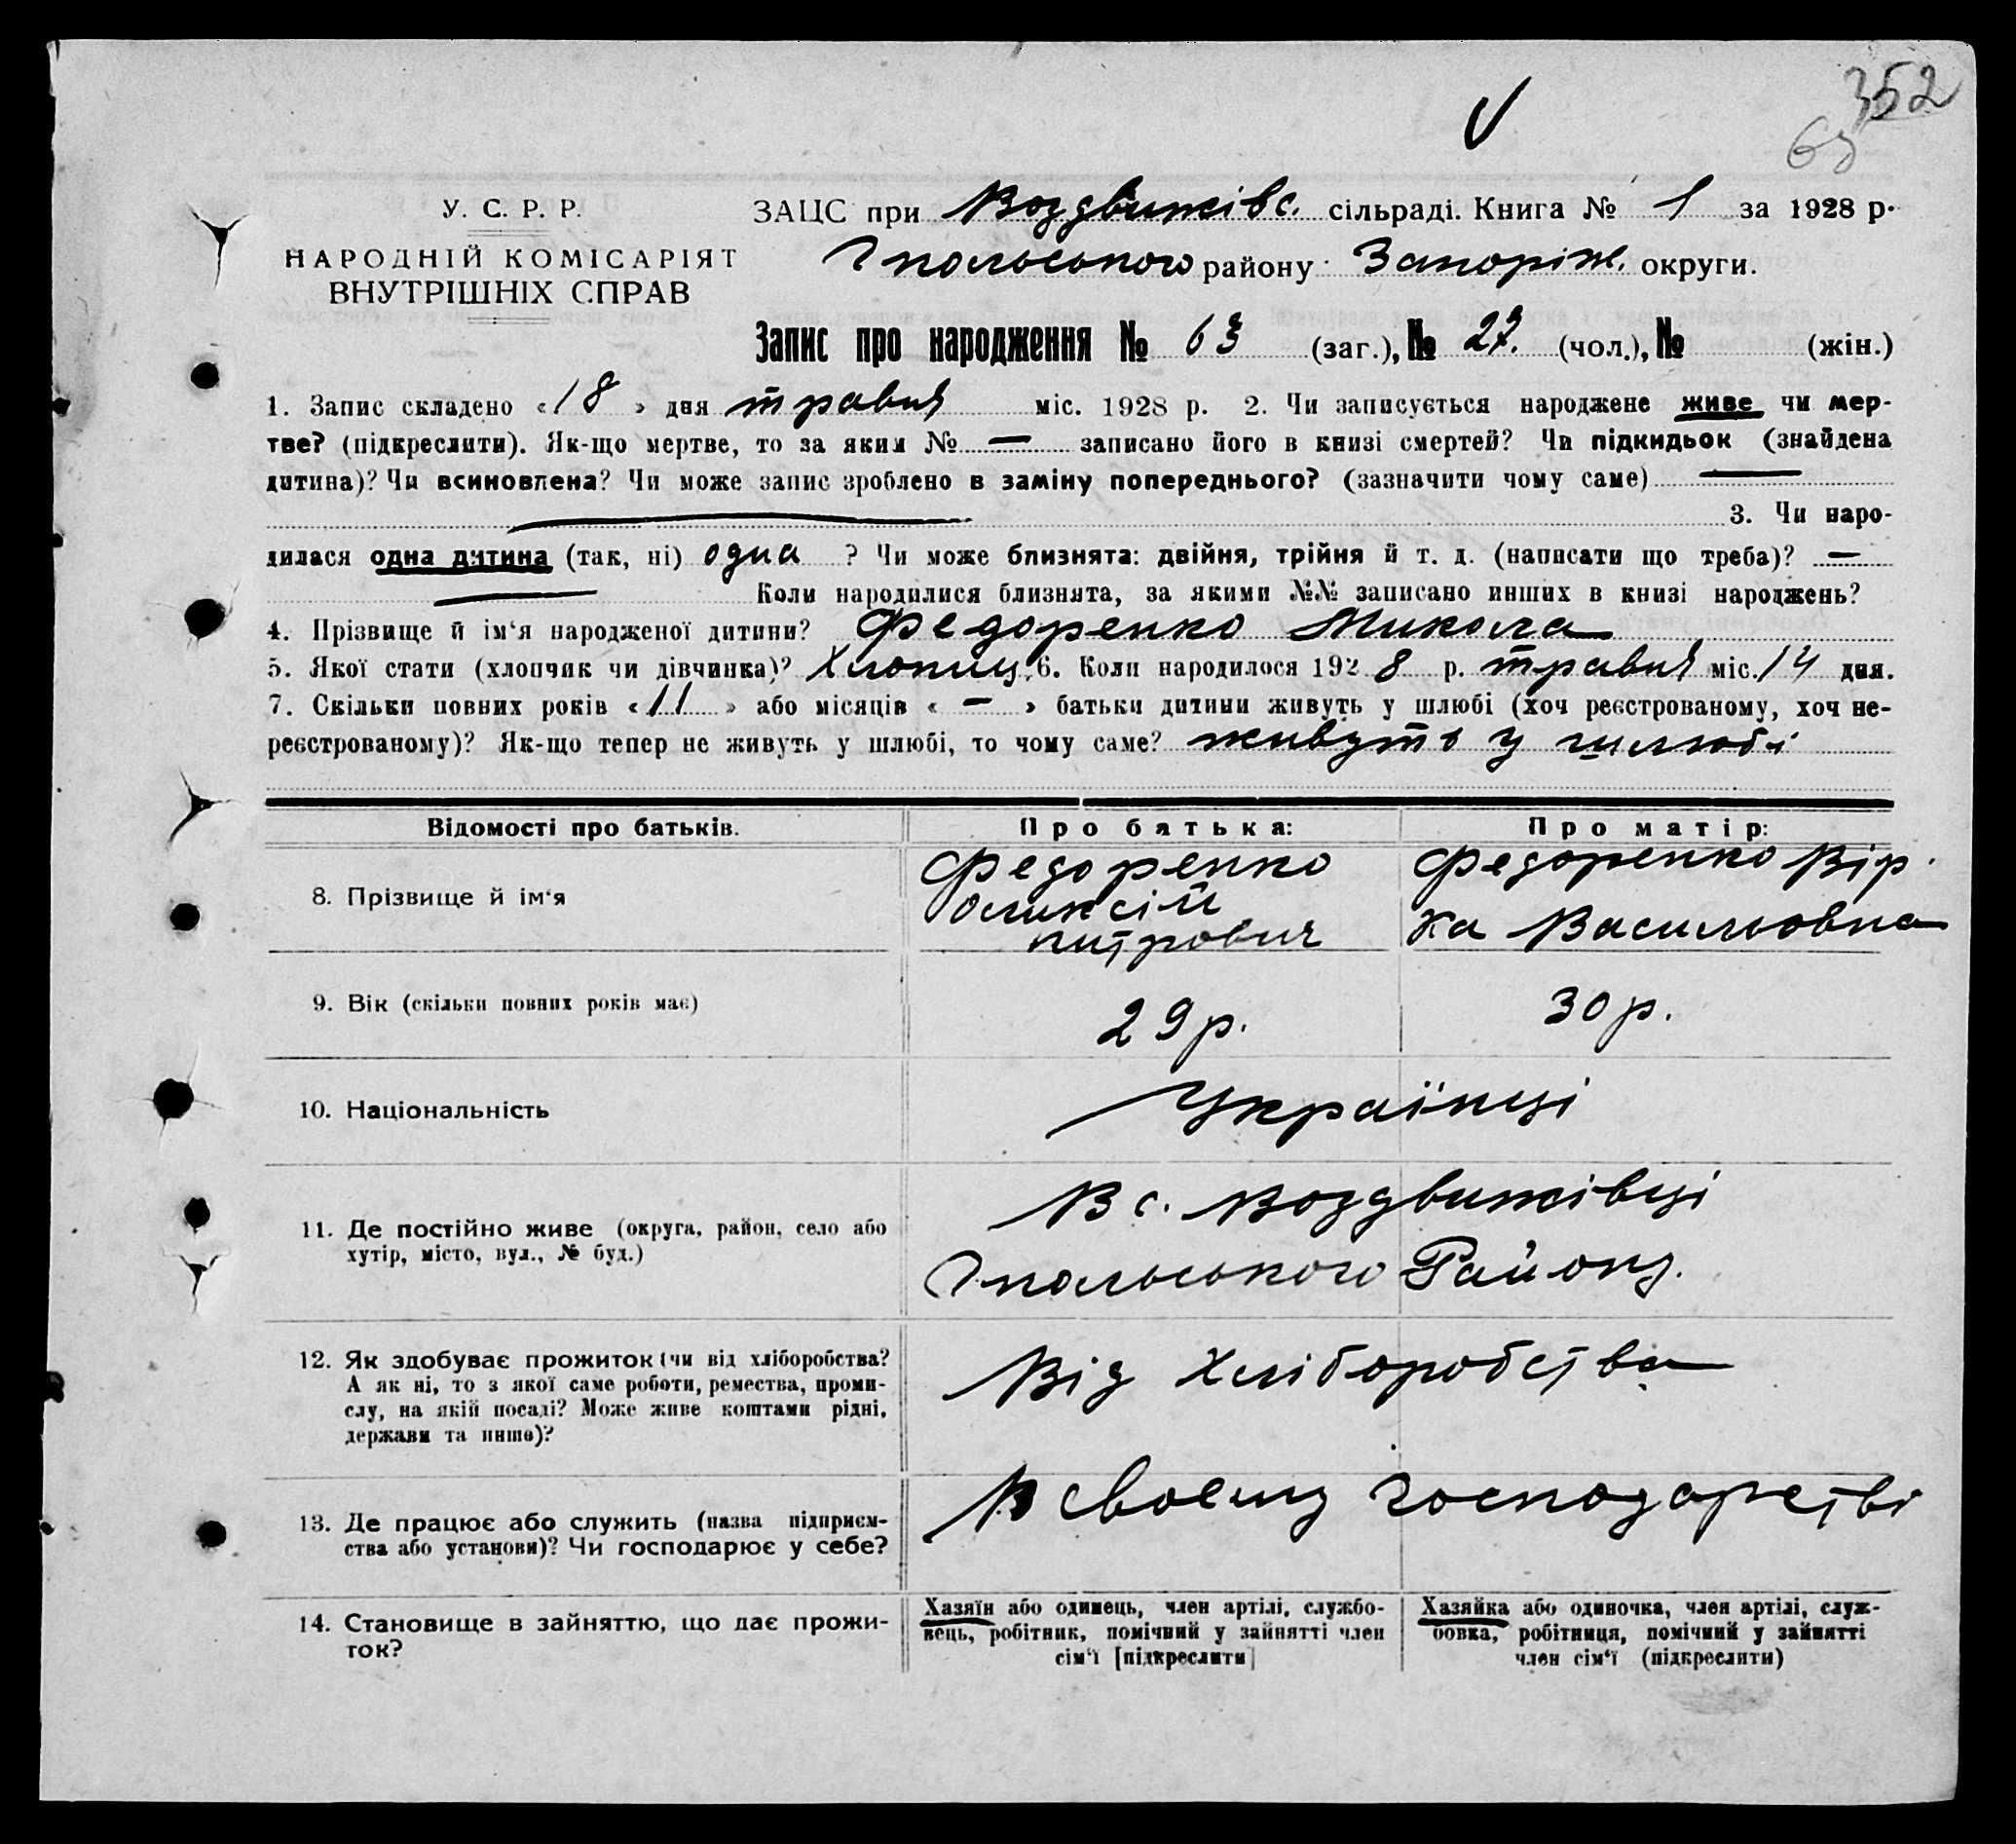 352
63
У. С. Р. Р.
НАРОДНІЙ КОМІСАРІЯТ
ВНУТРІШНІХ СПРАВ
ЗАЦС при Воздвижівс. сільраді. Книга № 1 за 1928 р.
Гпольського району Запоріж. округи.
Запис про народження № 63 (заг.), № 27. (чол.), № (жін.)
1. Запис складено «18» дня травня міс. 1928 р. 2. Чи записується народжене живе чи мер-
тве? (підкреслити). Як-що мертве, то за яким № — записано його в книзі смертей? Чи підкидьок (знайдена
дитина)? Чи всиновлена? Чи може запис зроблено в заміну попереднього? (зазначити чому саме) —
— 3. Чи наро-
дилася одна дитина (так, ні) одна ? Чи може близнята: двійня, трійня й т. д. (написати що треба)? —
— Коли народилися близнята, за якими №№ записано инших в книзі народжень?
4. Прізвище й ім‘я народженої дитини? Федоренко Микола
5. Якої стати (хлопчик чи дівчинка)? Хлопиц 6. Коли народилося 1928 р. травня міс. 14 дня.
7. Скільки повних років «11» або місяців « — » батьки дитини живуть у шлюбі (хоч реєстрованому, хоч не-
реєстрованому)? Як-що тепер не живуть у шлюбі, то чому саме? живуть у шлюбі
Відомості про батьків.
Про батька:
Про матір:
8. Прізвище й ім‘я
Федоренко
Оликсій
питрович
Федоренко Вір
ка Васильовна
9. Вік (скільки повних років має)
29 р.
30 р.
10. Національність
Українці
11. Де постійно живе (округа, район, село або
хутір, місто, вул., № буд.)
В с. Воздвижівці
Гпольського Району.
12. Як здобуває прожиток (чи від хліборобства?
А як ні, то з якої саме роботи, ремества, проми-
слу, на якій посаді? Може живе коштами рідні,
держави та инше)?
Від Хліборобства
13. Де працює або служить (назва підприєм-
ства або установи)? Чи господарює у себе?
В своєму господарстві
14. Становище в зайняттю, що дає прожи-
ток?
Хазяїн або одинець, член артілі, службо-
вець, робітник, помічний у зайнятті член
сім‘ї [підкреслити]
Хазяйка або одиночка, член артілі, служ-
бовка, робітниця, помічний у зайнятті
член сім‘ї (підкреслити)